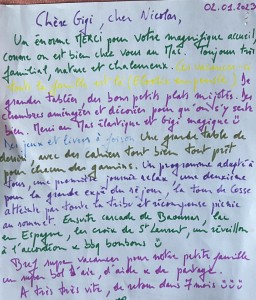 02.01.2023
Chère Gigi, cher Nicolas,
Un énorme MERCI pour votre magnifique accueil,
comme on est bien chez vous au Mas. Toujours très
familial, nature et chaleureux. Les vacances
toute la famille et le
grandes tablées, des bons petits plats mijotés. Les
chambres aménagées et décorées pour qu'on s'y sente
bien. Merci au Mas élastique et Gigi magique
Les jeux et livres à foison. Une grande table de
dessin avec des cahiers tout bien tout prêt
pour chacun des gamins. Un programme adapté à
tous, une première journée relax, une deuxième
pour la grande expé du séjour, la tour de
atteinte par toute la tribu et récompense picnic
au sommet. Ensuite cascade de, lac
en Espagne, les croix de St Laurent, un réveillon
à l'accordéon x bbq bonbons
Bref super vacances pour notre petite famille
un super bol d'air, d'aide x de partage.
A très très vite, de retour dans 7 mois